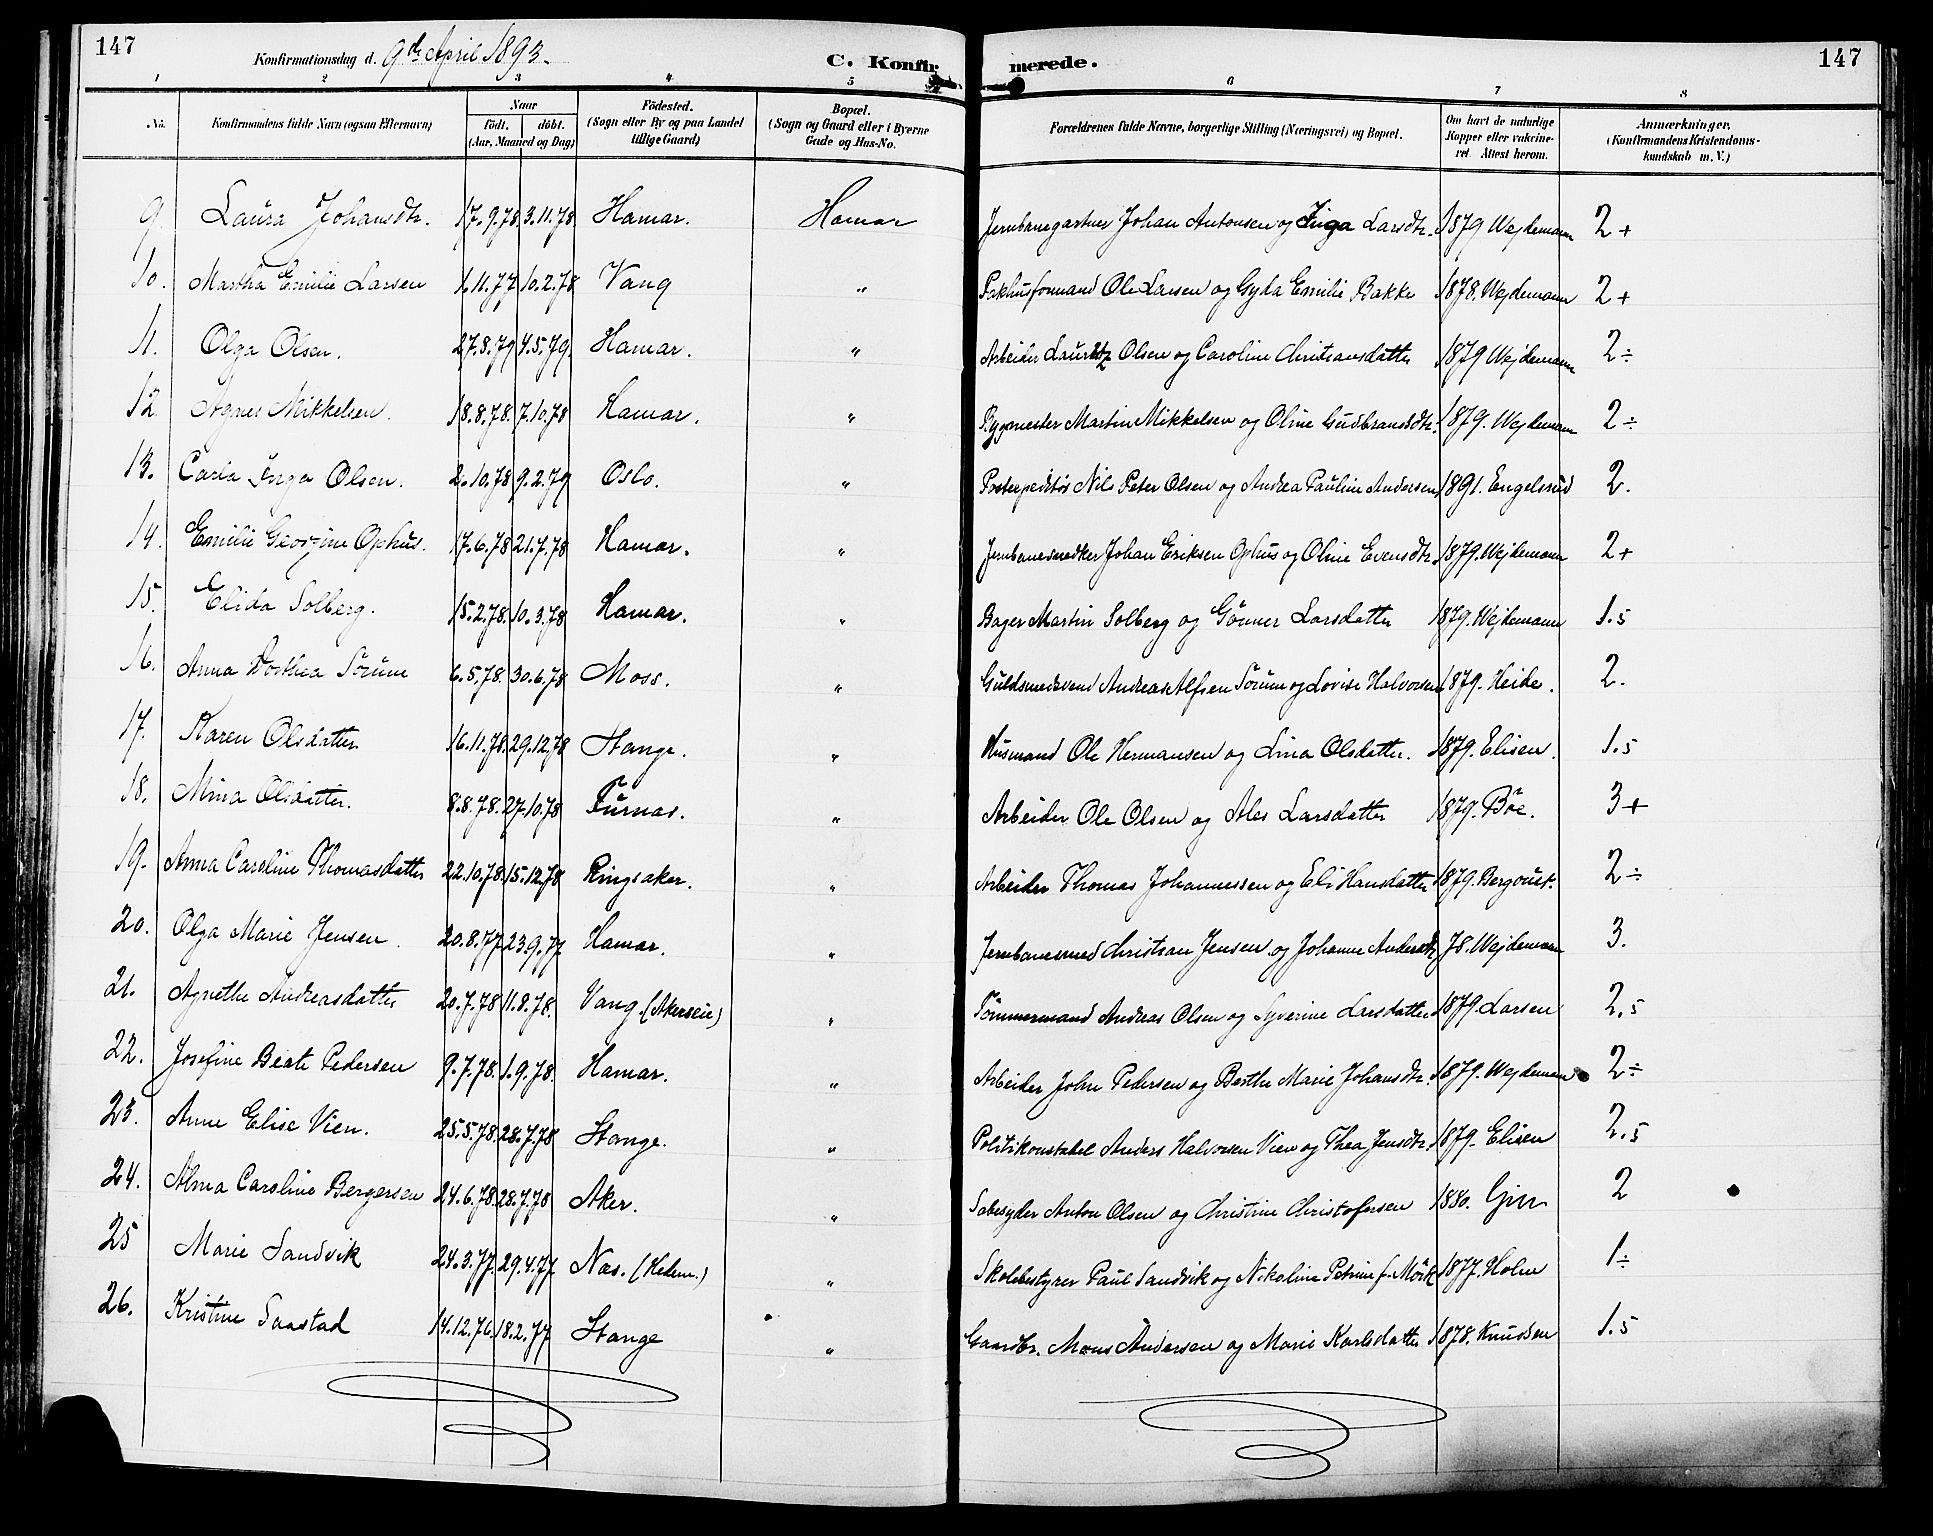 147
Konfirmationsdag d. 9de April 1893.
C. Konfirmerede.
147
1 2 3 4 5 6 7 8
No.
Konfirmandens fulde Navn (ogsaa Efternavn)
Naar
födt. döbt.
(Aar, Maaned og Dag)
Födested.
(Sogn eller By og paa Landet tillige Gaard)
Bopæl.
(Sogn og Gaard eller i Byerne Gade og Hus-No.
Forældrenes fulde Navne, borgerlige Stilling (Næringsvei) og Bopæl.
Om havt de naturlige Kopper eller vakcineret. Attest herom.
Anmærkninger,
(Konfirmandens Kristendomskundskab m. V.)
9. Laura Johansdtr. 17.9.78 3.11.78 Hamar. Hamar Jernbanegartner Johan Antonsen og Inga Larsdtr. 1879 Wejdemann 2+
10. Martha Emilie Larsen 1.11.77 10.2.78 Vang " Pakhusformand Ole Larsen og Gyda Emilie Bakke 1878. Wejdemann 2+
11. Olga Olsen. 27.8.79 4.5.79. Hamar. " Arbeider Lauritz Olsen og Caroline Christiansdatter 1879 Wejdemann 2÷
12. Agnes Mikkelsen. 18.8.78. 7.10.78 Hamar. " Bygmester Martin Mikkelsen og Oline Gudbrandsdtr. 1879. Wejdemann 2÷
13. Carla Inga Olsen. 2.10.78 9.2.79 Oslo. " Postexpeditör Nils Peter Olsen og Andrea Pauline Andersen 1891. Engelsrud 2.
14. Emilie Georgine Ophus. 17.6.78 21.7.78 Hamar. " Jernbanesnedker Johan Eriksen Ophus og Oline Evensdtr. 1879. Wejdemann 2+
15. Elida Solberg. 15.2.78. 10.3.78 Hamar. " Bager Martin Solberg og Gönner Larsdatter 1879. Wejdemann 1.5
16. Anna Dorthea Sörum 6.5.78. 30.6.78 Moss. " Guldsmedsvend Andreas Alfsen Sörum og Lovise Halvorsen 1879. Heide. 2.
17. Karen Olsdatter 16.11.78. 29.12.78 Stange. " Husmand Ole Hermansen og Lina Olsdatter. 1879. Elisen. 1.5
18. Mina Olsdatter. 8.8.78. 27.10.78 Furnas. " Arbeider Ole Olsen og Ales Larsdatter 1879. Böe. 3+
19. Anna Caroline Thomasdatter 22.10.78. 15.12.78 Ringsaker. " Arbeider Thomas Johannessen og Eli Hansdatter 1879. Bergouist. 2÷
20. Olga Marie Jensen. 20.8.77 23.9.77. Hamar. " Jernbanesmed Christian Jensen og Johanne Andersdtr 78. Wejdemann 3.
21. Agnethe Andreasdatter 20.7.78 11.8.78. Vang. (Akerseie) " Tömmermand Andreas Olsen og Syverine Larsdatter 1879. Larsen 2,5
22. Josefine Beate Pedersen 9.7.78. 1.9.78. Hamar. " Arbeider John Pedersen og Berthe Marie Johansdtr. 1879. Wejdemann 2÷
23. Anne Elise Vien. 25.5.78. 28.7.78 Stange. " Politikonstabel Anders Halvorsen Vien og Thea Jensdtr. 1879. Elisen 2.5
24. Alma Caroline Bergersen 24.6.78. 28.7.78 Aker. " Anton Olsen og Christine Christofersen 1880. 2
25 Marie Sandvik 24.3.77. 29.4.77 Nas. (Hedm.) " Skolebestyrer Paul Sandvik og Nikoline Petrine f. Mörk 1877. Holm 1÷
26. Kristine Saastad 14.12.76. 18.2.77 Stange " Gaardbr. Mons Andersen og Marie Karlsdatter 1878. Knudsen 1.5